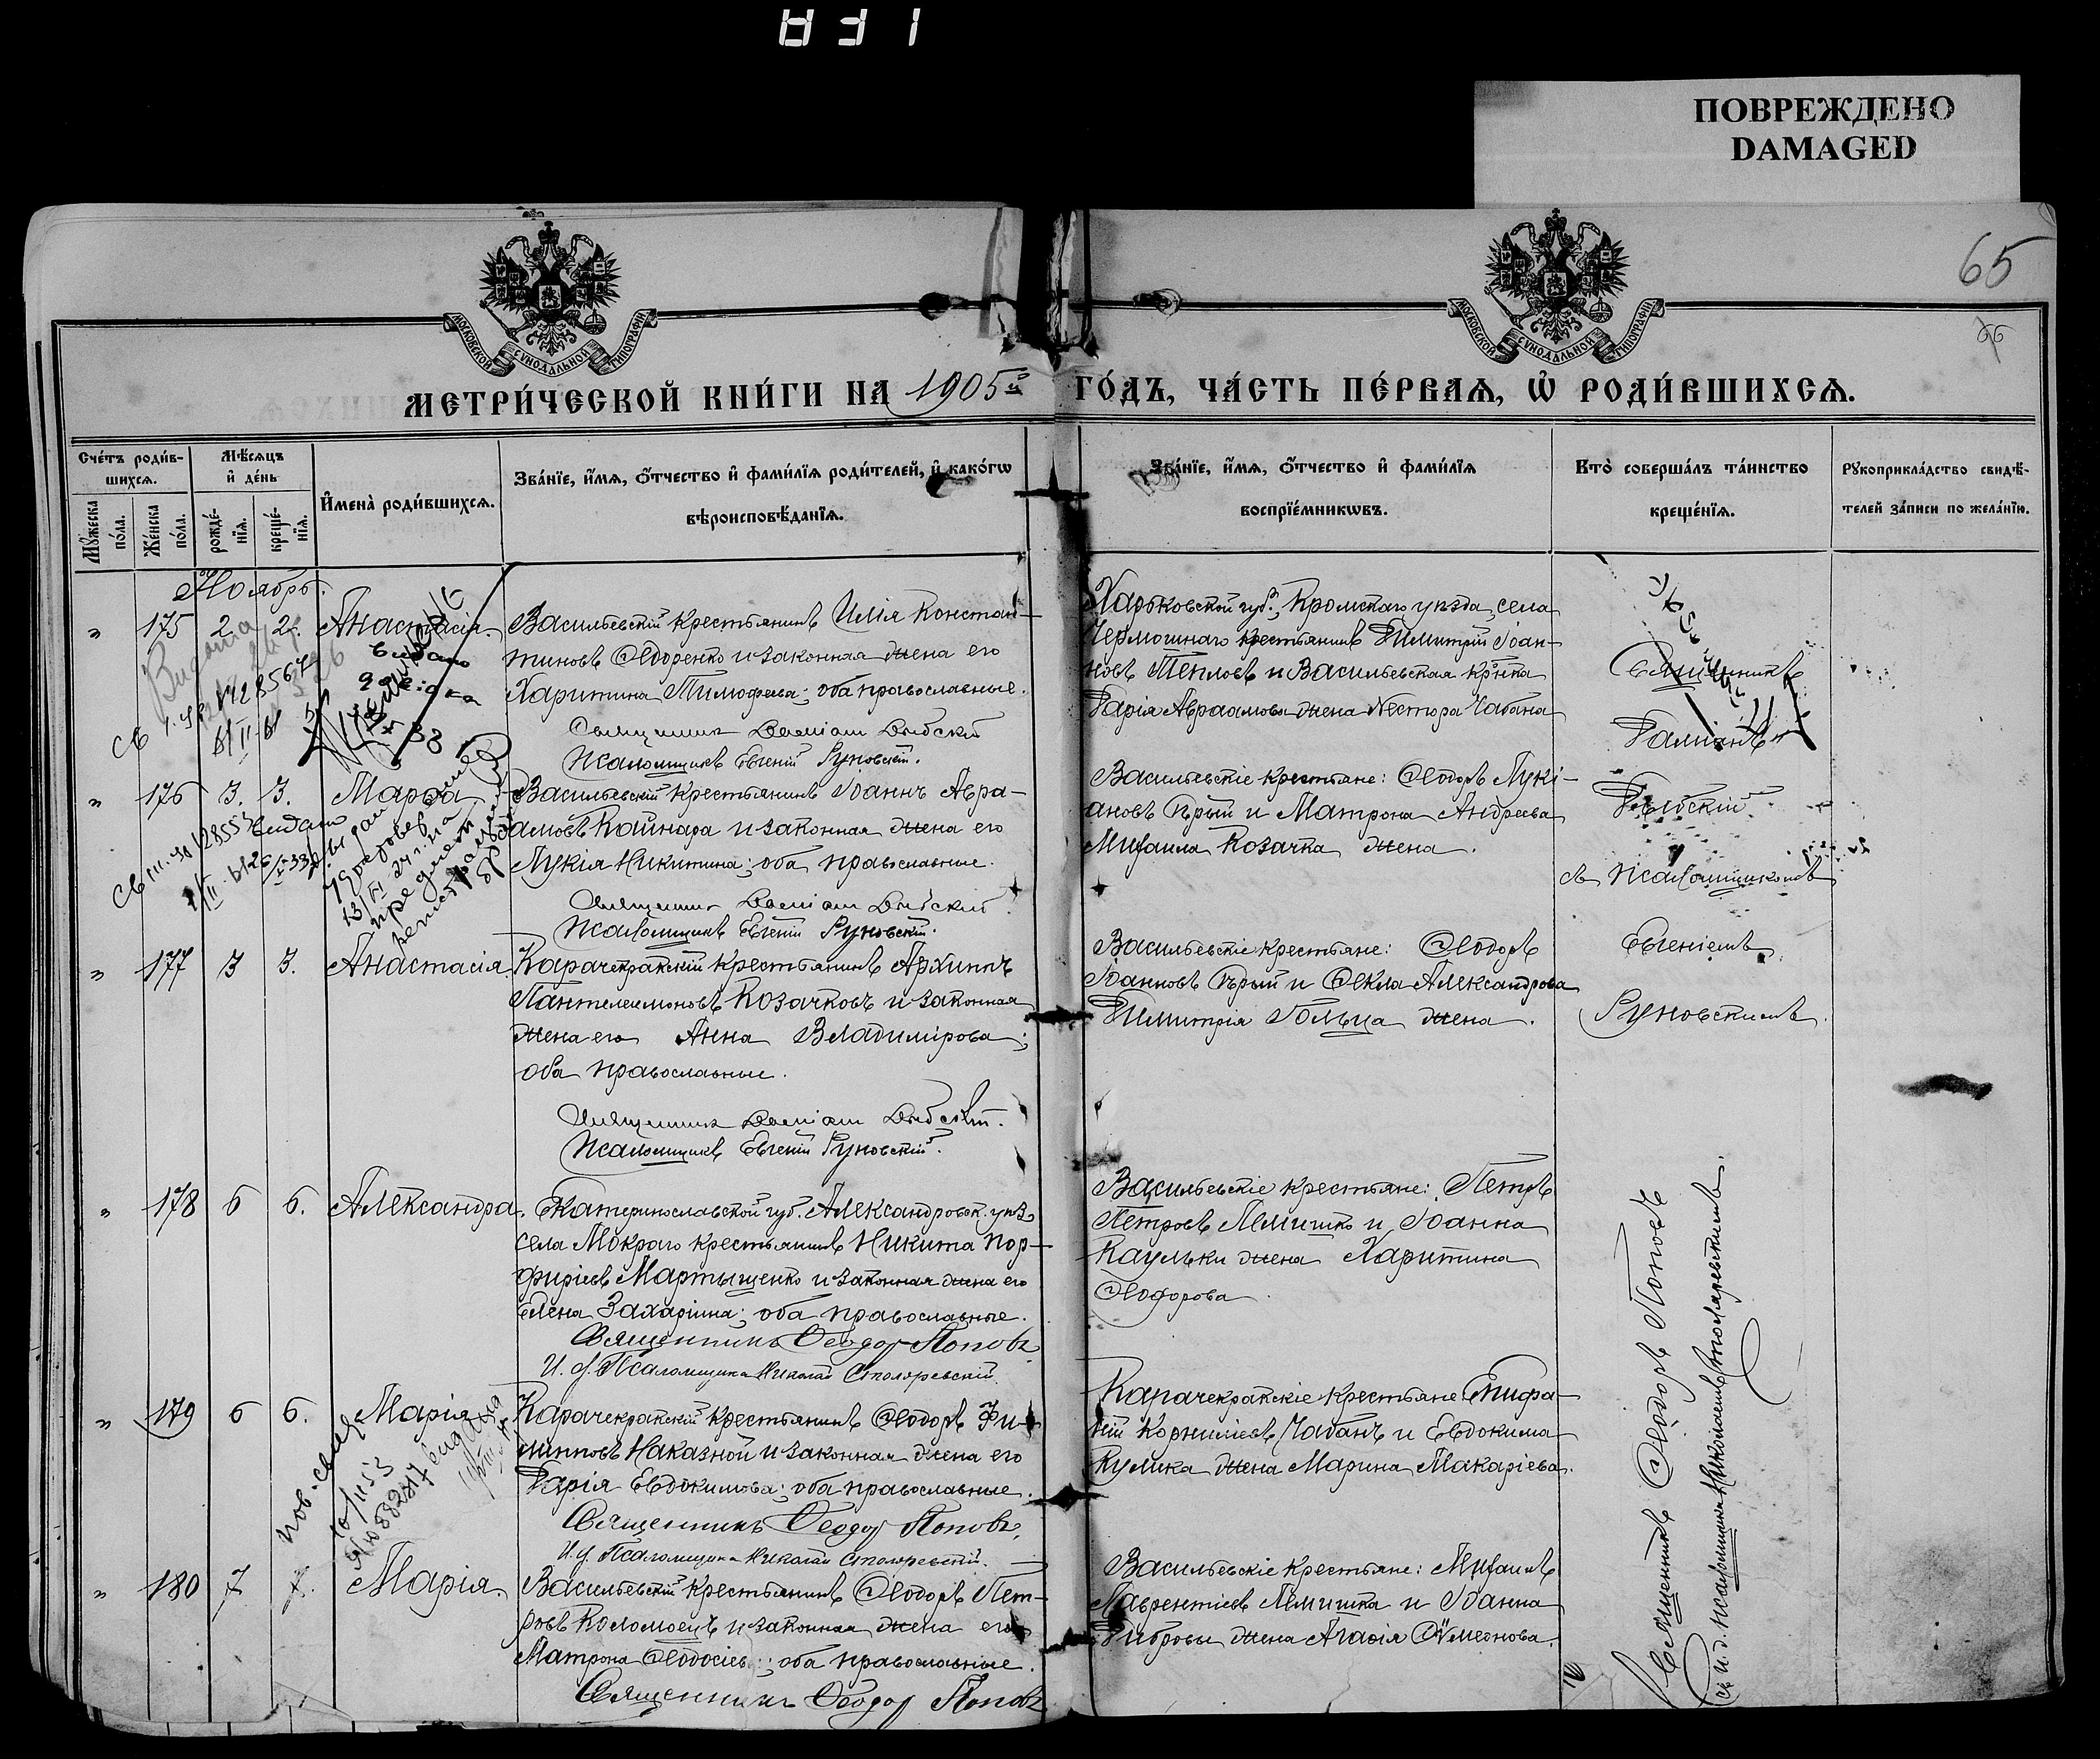 831
ПОВРЕЖДЕНО
DAMAGED
65
66
МОСКОВСКОЙ СУНОДАЛЬНОЙ ТИПОГРАФИИ
МОСКОВСКОЙ СУНОДАЛЬНОЙ ТИПОГРАФИИ
МЕТРИ́ЧЕСКОЙ КНИ́ГИ НА 1905й ГО́ДЪ, ЧА́СТЬ ПЕ́РВАѦ, Ѡ҆ РОДИ́ВШИХСѦ.
Сче́тъ роди́в-
шихсѧ.
Мѣ́сѧцъ
и҆ де́нь
Мꙋ́жеска
по́ла.
Же́нска
по́ла.
рожде́-
нїѧ.
креще́-
нїѧ.
И҆мена̀ роди́вшихсѧ.
Зва́нїе, и҆́мѧ, ѻ҆́тчество и҆ фами́лїѧ роди́телей, и҆ како́гѡ
вѣроисповѣ́данїѧ.
Зва́нїе, и҆́мѧ, ѻ҆́тчество и҆ фами́лїѧ
воспрїе́мникѡвъ.
Кто̀ соверша́лъ та́инство
креще́нїѧ.
Рꙋкоприкла́дство свидѣ́-
телей за́писи по жела́нїю.
Ноябрь.
" 175 2 2. Анастасія.
Васильевскій крестьянинъ Илія Констан-
тиновъ Ѳедоренко и законная жена его
Харитина Тимофеева; оба православные.
Священникъ Даміанъ Дыбскій
Псаломщикъ Евгеній Руновскій.
Харьковской губ., Кромскаго уѣзда, села
Чермошнаго крестьянинъ Димитрій Іоан-
новъ Тепловъ и Васильевская кр-нка
Дарія Авраамова жена Нестора Чабана
Видано
" 176 3. 3. Марѳа
Васильевскій крестьянинъ Іоаннъ Авра-
амовъ Кайнара и законная жена его
Лукія Никитина; оба православные.
Священникъ Даміанъ Дыбскій
Псаломщикъ Евгеній Руновскій.
Васильевскіе крестьяне: Ѳеодоръ Лукі-
ановъ и Матрона Андреева
Михаила Козачка жена.
видано
" 177 3 3. Анастасія
Карачекракскій крестьянинъ Архиппъ
Пантелеимоновъ Козачковъ и законная
жена его Анна Владимірова;
оба православные.
Священникъ Даміанъ Дыбскій.
Псаломщикъ Евгеній Руновскій.
Васильевскіе крестьяне: Ѳеодоръ
Іоанновъ и Ѳекла Александрова
Димитрія Гольца жена.
Священникъ
Даміанъ
Дыбскій
съ псаломщикомъ
Евгеніемъ
Руновскимъ.
" 178 6 6. Александра.
Екатеринославской губ. Александровск. уѣз.
села Мокраго крестьянинъ Никита Пор-
фиріевъ Мартыщенко и законная жена его
Елена Захаріина; оба православные.
Священникъ Ѳеодоръ Поповъ
И. д. Псаломщика Николай Столяревскій
Васильевскіе крестьяне: Петръ
Петровъ Лемишко и Іоанна
жена Харитина
Ѳеодорова
" 179 6 6. Марія
Карачекракскій крестьянинъ Ѳеодоръ Фи-
липповъ Наказной и законная жена его
Дарія Евдокимова; оба православные.
Священникъ Ѳеодоръ Поповъ.
И. д. Псаломщика Николай Столяревскій.
Карачекракскіе крестьяне: Епифа-
ній Корниліевъ Чабанъ и Евдокима
Кулика жена Марина Макаріева.
" 180 7 7. Марія.
Васильевскій крестьянинъ Ѳеодоръ Пет-
ровъ Коломоецъ и законная жена его
Матрона Ѳеодосіев; оба православные.
Священникъ Ѳеодоръ Поповъ
Васильевскіе крестьяне: Михаилъ
Лаврентіевъ Лемишка и Іоанна
Диброва жена Агафія Сѵмеонова.
Священникъ Ѳеодоръ Поповъ
съ и. д. псаломщика Николаемъ Столяревскимъ.